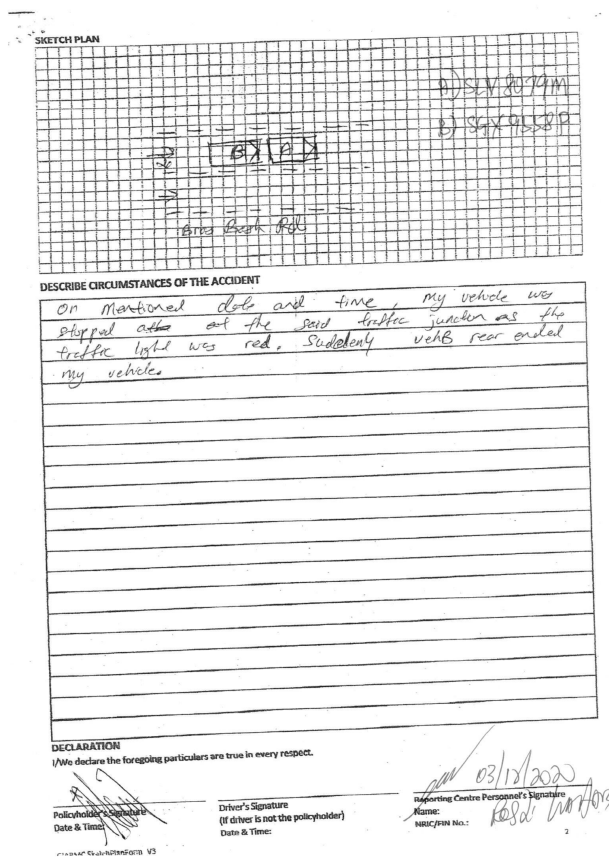 SKETCH PLAN
A) SLV 8079M
B) SGX 9558P
B A
Bras Basah Rd
DESCRIBE CIRCUMSTANCES OF THE ACCIDENT
on mentioned date and time, my vehicle was
stopped at the said traffic junction as the
traffic light was red. Suddenly veh B rear ended
my vehicle.
DECLARATION
I/We declare the foregoing particulars are true in every respect.
03/12/2020
Policyholder's Signature
Date & Time:
Driver's Signature
(If driver is not the policyholder)
Date & Time:
Reporting Centre Personnel's Signature
Name:
NRIC/FIN No.:
2
SketchPlanForm V3